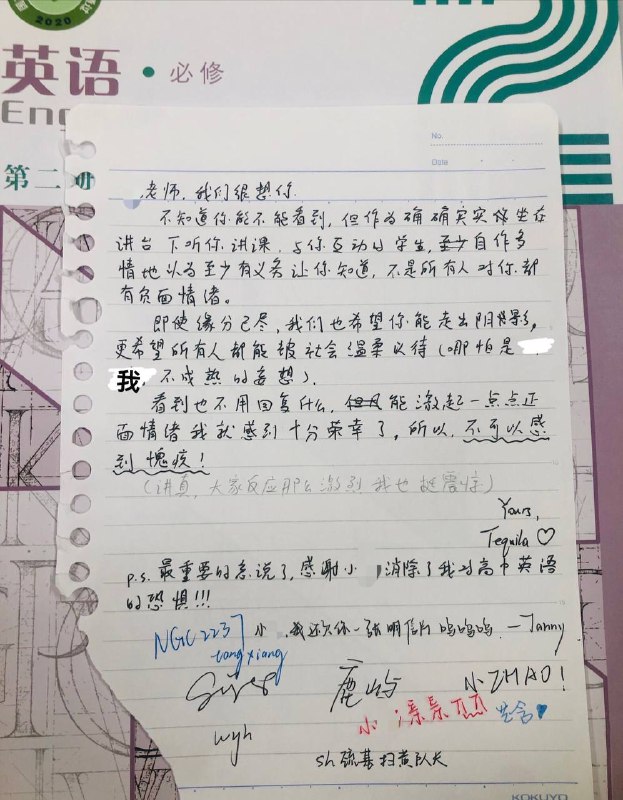 2020
英语·必修
Eng
第二册
No.
Date
老师,我们很想你
不知道你能不能看到,但作为确确实实坐在
讲台下听你讲课,与你互动的学生,至少自作多
情地以为至少有义务让你知道,不是所有人对你都
有负面情绪。
即使缘分已尽,我们也希望你能走出阴影,
更希望所有人都能被社会温柔以待(哪怕是
我不成熟的妄想)。
看到也不用回复什么,但凡能激起一点点正
面情绪我就感到十分荣幸了,所以,不可以感
到愧疚!
(讲真,大家反应那么激烈我也挺震惊)
Yours,
Tequila♡
p.s. 最重要的忘说了,感谢小 消除了我对高中英语
的恐惧!!!
NGC2237
小 我还欠你一张明信片呜呜呜 —Janny
tangxiang
鹿屿
小ZHAO!
小
wyh
sh硫基扫黄队长
KOKUYO